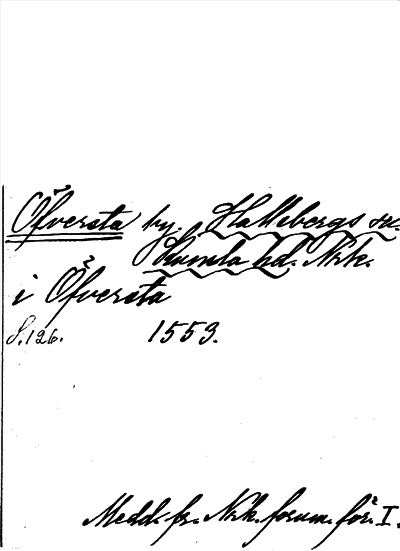 Öfversta by. Hallsbergs sn.
Kumla hd. Nrk.
i Öfversta
S. 126. 1553.
Medd. fr. Nrk. fornm. för. I.